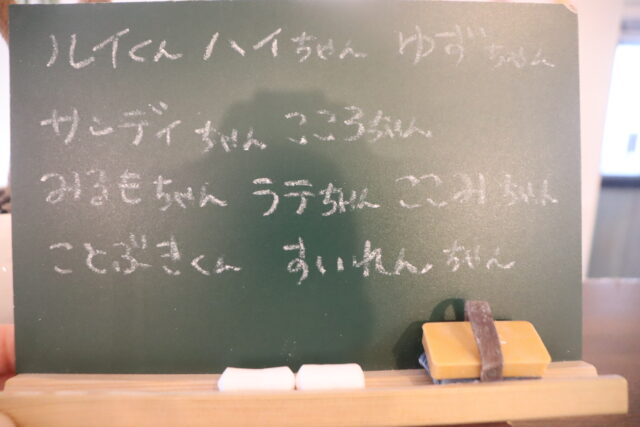 ルイくん ハイちゃん ゆずちゃん
サンディちゃん こころちゃん
みるもちゃん ラテちゃん ここみちゃん
ことぶきくん すいれんちゃん